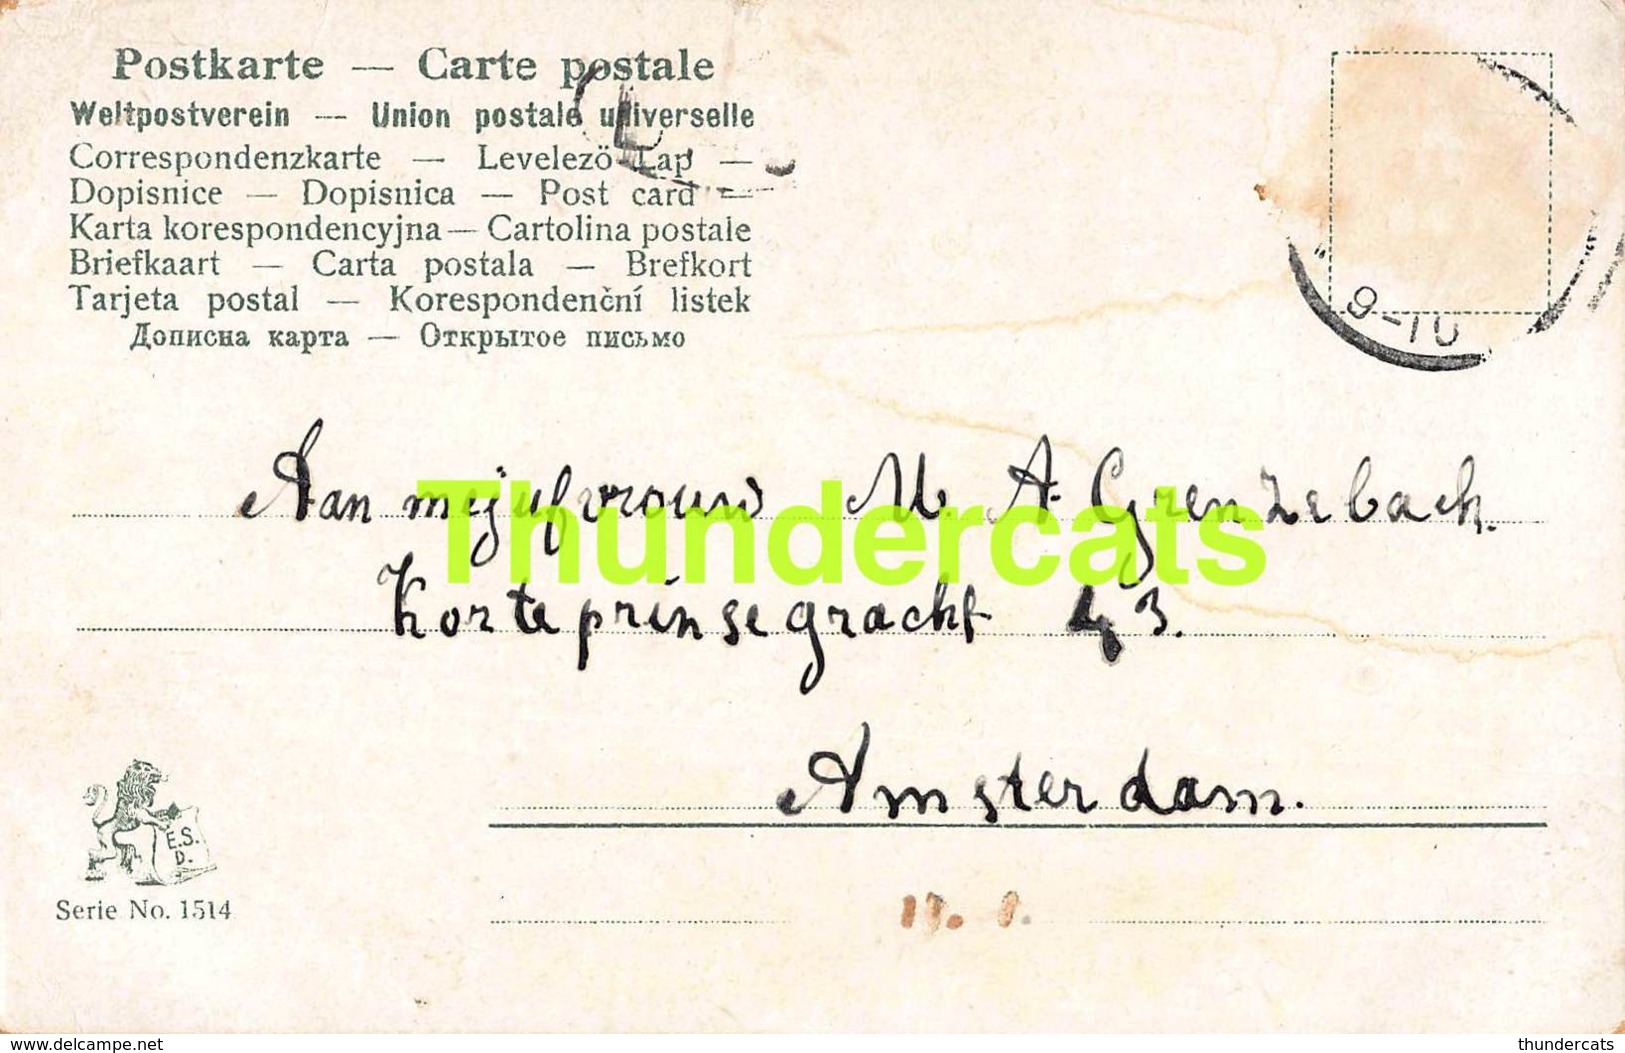 Postkarte — Carte postale
Weltpostverein — Union postale universelle
Correspondenzkarte — Levelező Lap —
Dopisnice — Dopisnica — Post card —
Karta korespondencyjna — Cartolina postale
Briefkaart — Carta postala — Brefkort
Tarjeta postal — Korespondenční listek
Дописна карта — Открытое письмо
9-10
Aan mejufvrouw M. A. Grenzebach.
Thundercats
Korte prinsegracht 43.
Amsterdam.
E.S.
D.
Serie No. 1514
www.delcampe.net
thundercats